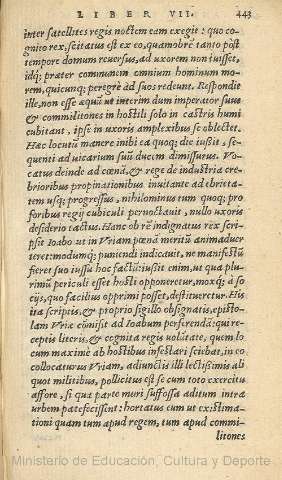 LIBER VII. 443
inter satellites regis noctem eam exegit: quo co-
gnito rex, scicitatus est ex eo, quamobrē tanto pōst
tempore domum reuersus, ad uxorem non iuisset,
idq; præter communem omnium hominum mo-
rem, quicunq; peregrè ad suos redeunt. Respondit
ille, non esse æquū ut interim dum imperator suus
& commilitones in hostili solo in castris humi
cubitant, ipse in uxoris amplexibus se oblectet.
Hac locutū manere inibi ea quoq; die iußit, se-
quenti ad uicarium suū ducem dimissurus. Vo-
catus deinde ad cœnā, & rege de industria cre-
brioribus propinationibus inuitante ad ebrieta-
tem usq; progressus, nihilominus tum quoq; pro
foribus regij cubiculi pernoctauit, nullo uxoris
desiderio tactus. Hanc ob rē indignatus rex scri-
psit Ioabo ut in Vriam pœna meritū animaduer
teret: modumq; puniendi indicauit, ne manifestū
fieret suo iussu hoc factū: iußit enim, ut qua plu-
rimū periculi esset hosti opponeretur, moxq; à so
cijs, quo facilius opprimi posset, destitueretur. His
ita scriptis, & proprio sigillo obsignatis, episto-
lam Vriæ cōmisit ad Ioabum perferendā: qui re
ceptis literis, & cognita regis uolūtate, quem lo
cum maximè ab hostibus infestari sciebat, in eo
collocaturus Vriam, adiunctis illi lectißimis ali
quot militibus, pollicitus est se cum toto exercitu
affore, si qua parte muri suffossa aditum intra
urbem patefecissent: hortatus eum ut existima-
tioni quam tum apud regem, tum apud commi-
litones
Ministerio de Educación, Cultura y Deporte